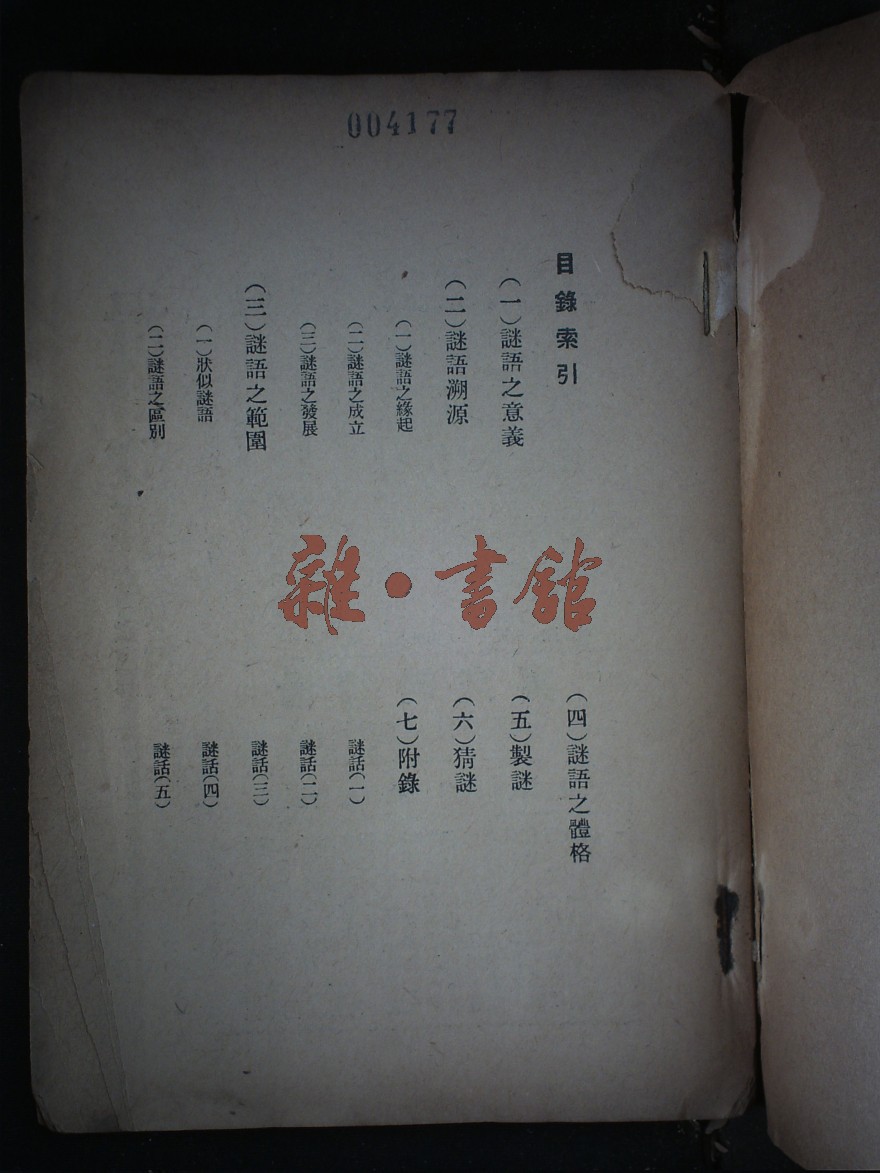 004177
目錄索引
(一)謎語之意義
(二)謎語溯源
(一)謎語之緣起
(二)謎語之成立
(三)謎語之發展
(三)謎語之範圍
(一)狀似謎語
(二)謎語之區別
(四)謎語之體格
(五)製謎
(六)猜謎
(七)附錄
謎話(一)
謎話(二)
謎話(三)
謎話(四)
謎話(五)
雜·書館